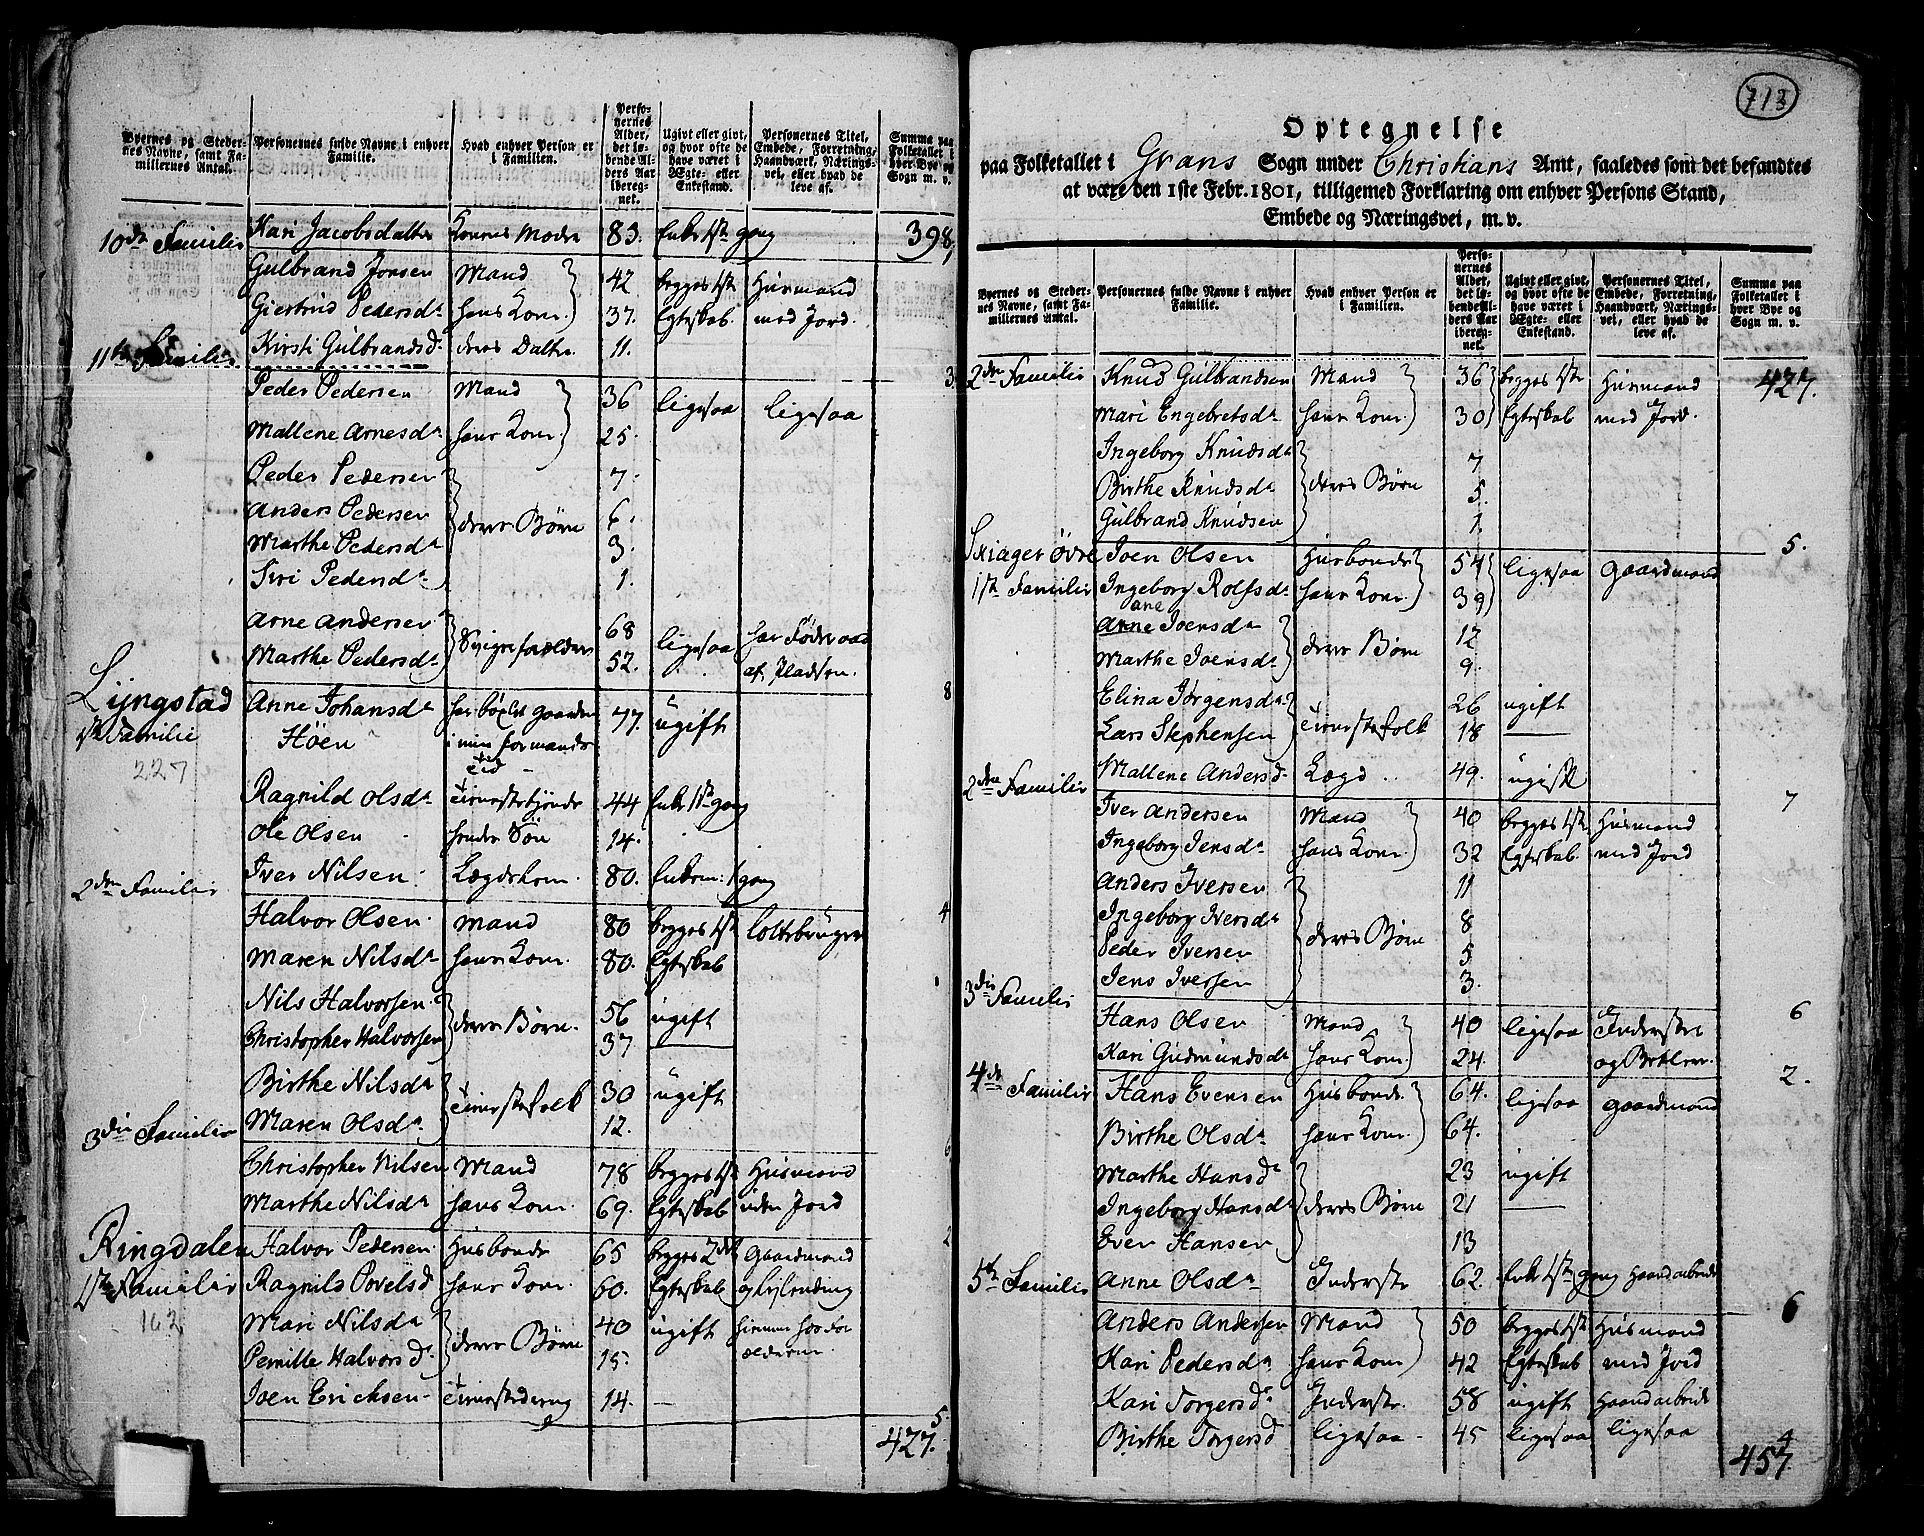 Byernes og Steder-
nes Navne, samt Fa-
millernes Antal.
Personernes fulde Navne i enhver
Familie.
Hvad enhver Person er
i Familien.
Perso-
nernes
Alder,
det lø-
bende Al-
ders Aar
iberegnet.
Ugivt eller givt,
og hvor ofte de
have været i
Ægte- eller
Enkestand.
Personernes Titel,
Embede, Forretning,
Haandværk, Nærings-
vei, eller hvad de
leve af.
Summa paa
Folketallet i
hver Bye og
Sogn m. v.
10de Familie Kari Jacobsdatter Konens Moder 83. Enke 1ste gang 398,
Gulbrand Jonsen Mand 42 begges 1ste Huusmand
Giertrud Pedersdr hans Kone. 37. Egteskab. med Jord.
11te Familie Kirsti Gulbrandsd deres Datter. 11. 3
Peder Pedersen Mand 36 ligesaa ligesaa
Mallene Arnesdr hans Kone. 25.
Peder Pedersen 7.
Anders Pedersen deres Børn 6.
Marthe Pedersdr 3.
Siri Pedersdr 1.
Arne Andersen Svigerforældre 68 ligesaa har Føderaad
Marthe Pedersdr 52. af Pladsen.
Lyngstad Anne Johansdr har bøxlet gaarden 77. ugift 8
1ste Familie Höen i min formands
227 tid
Ragnild Olsdr tienestetjende 44 Enke 1ste gang
Ole Olsen hendes Søn 14.
Iver Nilsen Lægdslem. 80. Enkem: 1 gang
2den Familie
Halvor Olsen Mand 80 begges 1ste lottebruger 4
Maren Nilsdr hans Kone. 80. Egteskab
Nils Halvorsen deres Børn. 56 ugift
Christopher Halvorsen 37
Birthe Nilsdr tienestefolk 30 ugift
Maren Olsdr 12.
3die Familie 6
Christopher Nilsen Mand 78 begges 1ste Huusmand
Marthe Nilsdr hans Kone. 69. Egteskab uden Jord
Ringdalen Halvor Pedersen Husbonde 65 begges 2det Gaardmand 2
1ste Familie Ragnild Povelsd hans Kone. 60. Egteskab
162 Mari Nilsdr deres Børn 40 ugift hiemme hos for
Pernille Halvorsdr 15. ældrene.
Joen Erichsen tienestedreng 14. —
5
427.
713
Optegnelse
paa Folketallet i Grans Sogn under Christians Amt, saaledes som det befandtes
at være den 1ste Febr. 1801, tilligemed Forklaring om enhver Persons Stand,
Embede og Næringsvei, m. v.
Byernes og Steder-
nes Navne, samt Fa-
millernes Antal.
Personernes fulde Navne i enhver
Familie.
Hvad enhver Person er
i Familien.
Perso-
nernes
Alder,
det lø-
bende Al-
ders Aar
iberegnet.
Ugivt eller givt,
og hvor ofte de
have været i
Ægte- eller
Enkestand.
Personernes Titel,
Embede, Forretning,
Haandværk, Nærings-
vei, eller hvad de
leve af.
Summa paa
Folketallet i
hver Bye og
Sogn m. v.
2den Familie Knud Gulbrandsen Mand 36 begges 1ste Huusmand 427.
Mari Engebretsdr hans Kone. 30 Egteskab med Jord.
Ingeborg Knudsdr 7
Birthe Knudsdr deres Børn 5.
Gulbrand Knudsen 1.
5.
Skiager øvre Joen Olsen Husbonde 54 ligesaa Gaardmand
1ste Familie Ingeborg Rolfsdr hans Kone. 39
ane
Arne Joensdr deres Børn 12
Marthe Joensdr 9.
Elina Jørgensdr tienestefolk 26 ugift
Lars Stephensen 18 —
Mallene Andersd Lægd 49. ugift
2den Familie 7
Iver Andersen Mand 40 begges 1ste Husmand
Ingeborg Jensdr hans Kone. 32 Egteskab. med Jord
Anders Iversen 11
Ingeborg Iversdr deres Børn 8
Peder Iversen 5
Jens Iversen 3.
3die Familie 6
Hans Olsen Mand 40 ligesaa Inderste
Kari Gudmundsdr hans Kone. 24. og Betler.
4de Familie 2.
Hans Evensen Husbonde. 64. ligesaa Gaardmand
Birthe Olsdr hans Kone. 64.
Marthe Hansdr 23 ugift
Ingeborg Hansdr deres Børn 21 —
Even Hansen 13
5te Familie Anne Olsdr Inderste 62. Enke 1ste gang Haandarbeide
6
Anders Andersen Mand 50 begges 1ste Husmand
Kari Pedersdr hans Kone. 42 Egteskab med Jord
Kari Torgersdr Inderste. 58 ugift Haandarbeide
Birthe Torgersd ligesaa 45 ligesaa ligesaa
4
457